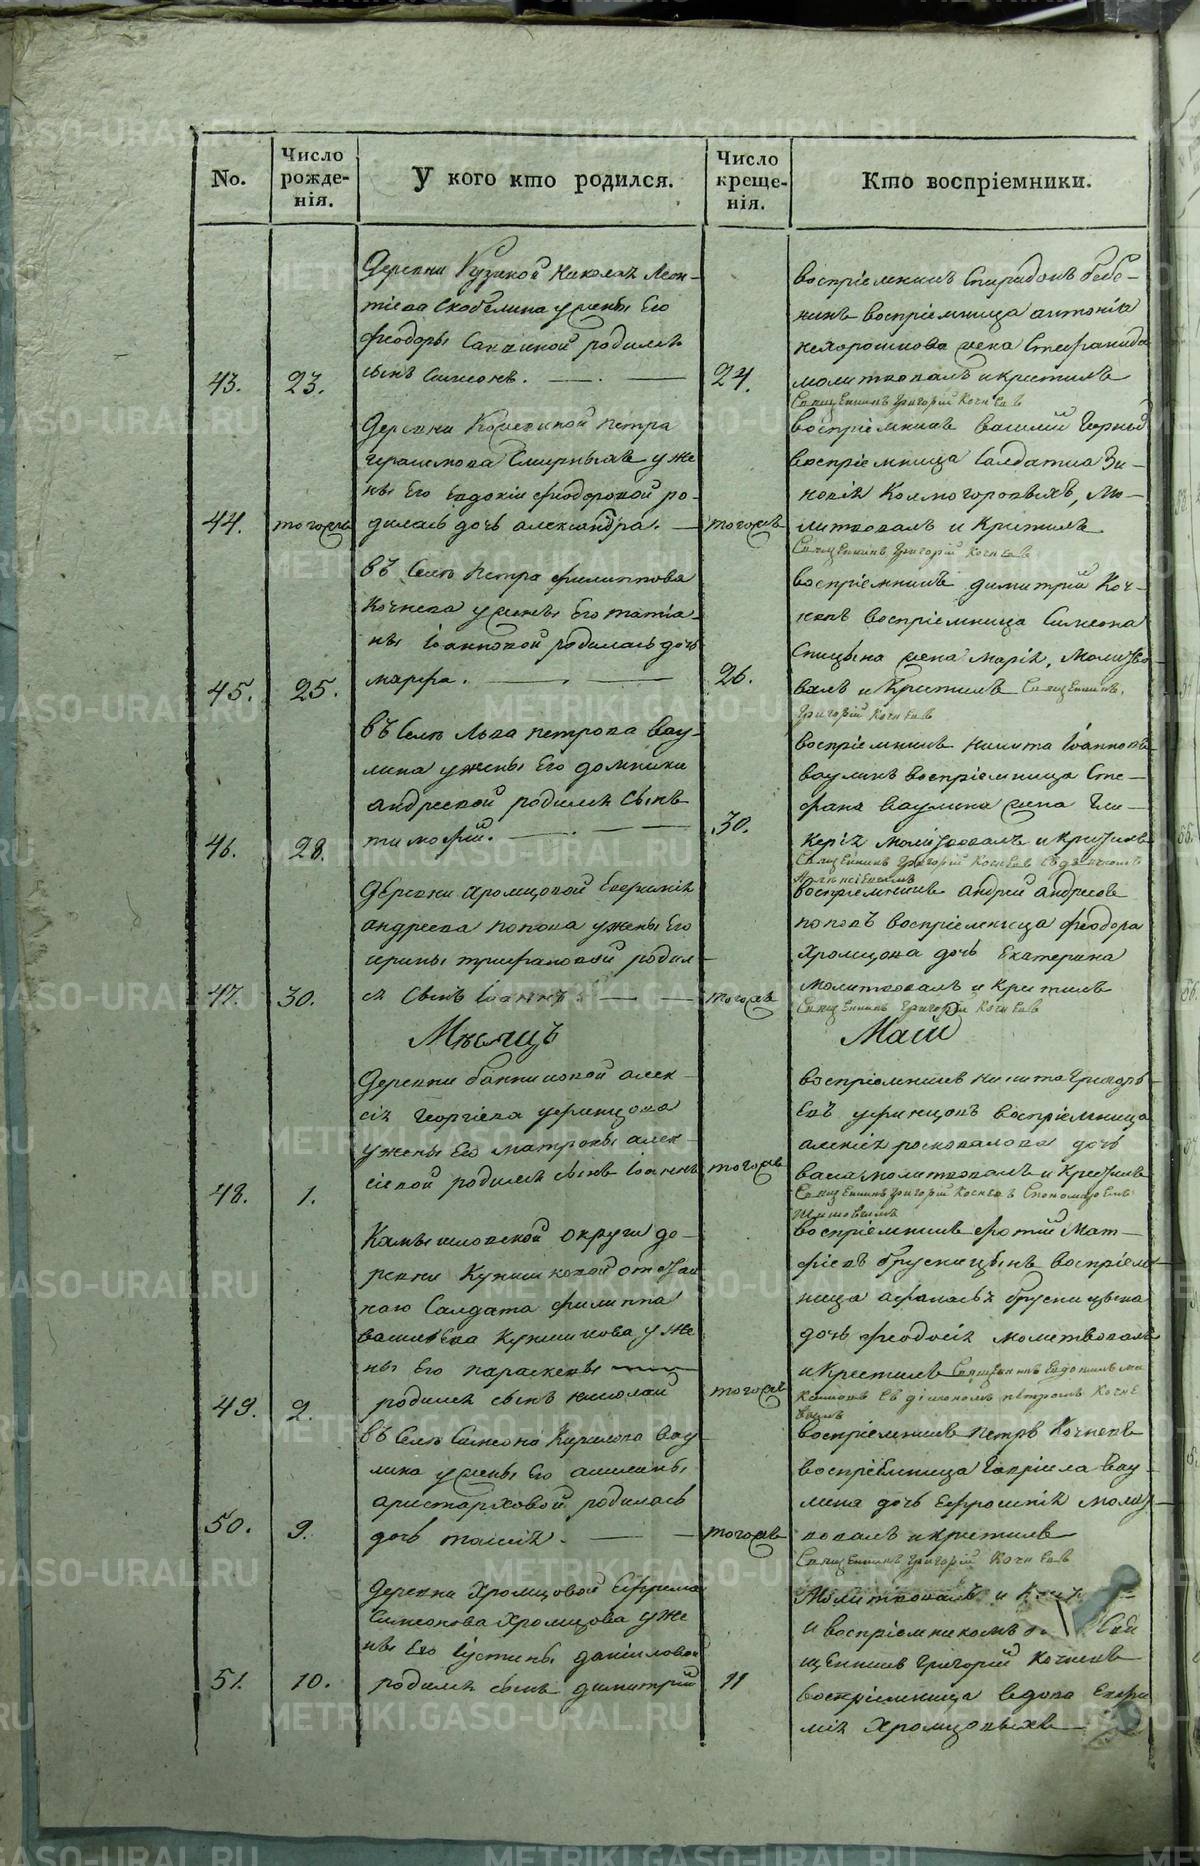 No.
Число рожде-нія.
У кого кто родился.
Число креще-нія.
Кто воспріемники.
43.
23.
Деревни Кузиной Николая Леон-
тіева Скобелина у жены Его
феодоры Саввиной родился
сынъ Симеонъ.
24.
воспріемникъ Спиридонъ Бебе-
нинъ воспріемница антонія
нехорошкова жена Стефанида
молитвовалъ и крестилъ
Священникъ Григорій Кочневъ
44.
тогожъ
Деревни петра
герасимова Смирныхъ у же
ны Его Евдокіи феодоровой ро-
дилась дочь александра.
тогожъ
воспріемникъ василий Черный
воспріемница Салдатка Зи-
новія Колмогоровыхъ, мо-
литвовалъ и Крестилъ
Священникъ Григорій Кочневъ
45.
25.
въ Селѣ Петра филиппова
Кочнева у жены Его татіа-
ны Іоанновой родилась дочь
марфа.
26.
воспріемникъ димитрій Коч-
невъ воспріемница Симеона
Спицына жена Марія, молитво-
валъ и Крестилъ Священникъ
Григорій Кочневъ
46.
28.
въ Селѣ Льва петрова вау-
лина у жены Его домники
андреевой родился Сынъ
тимофей.
30.
воспріемникъ никита Іоанновъ
ваулинъ воспріемница Сте-
фана ваулина жена Гли-
керія молитвовалъ и крестилъ
Священникъ Григорій Кочневъ Съ дьячкомъ
47.
30.
деревни Хромцовой Евгенія
андреева попова у жены Его
ирины трифановой родил-
ся Сынъ Іоаннъ
тогожъ
воспріемникъ андрей андреевъ
поповъ воспріемница феодора
Хромцова дочь Екатерина
молитвовалъ и Крестилъ
Священникъ Григорій Кочневъ
Мѣсяцъ
Маій
48.
1.
Деревни алек-
сія Георгіева уфинцова
у жены Его матроны алек-
сіевой родился сынъ Іоаннъ
тогожъ
воспріемникъ никита Григорь-
Евъ уфинцовъ воспріемница
алексія дочь
васса молитвовалъ и Крестилъ
Священникъ Григорій Кочневъ Съ пономаремъ
49.
2.
Камышловской округи де-
ревни Куншиковой отстав
наго Салдата филиппа
васильева у же
ны Его параскевы
родился сынъ николай
тогожъ
воспріемникъ фотий Мат-
фіевъ брусницынъ воспріем
ница афанасья брусницына
дочь феодосія молитвовалъ
и Крестилъ Священникъ Евдокимъ
Съ діакономъ петромъ Кочне
вымъ
50.
9.
въ Селѣ Симеона Кирилова вау
лина у жены Его
аристарховой родилась
дочь таисія.
тогожъ
воспріемникъ петръ Кочневъ
воспріемница Гавріила вау-
лина дочь Ефросинія молит
вовалъ и крестилъ
Священникъ Григорій Кочневъ
51.
10.
Деревни Хромцовой Ефрема
Симеонова Хромцова у же
ны Его Іустины даніиловой
родился сынъ димитрій
11
Молитвовалъ и
и воспріемникомъ Свя
щенникъ Григорій Кочневъ
воспріемница вдова
Хромцовыхъ
METRIKI.GASO-URAL.RU